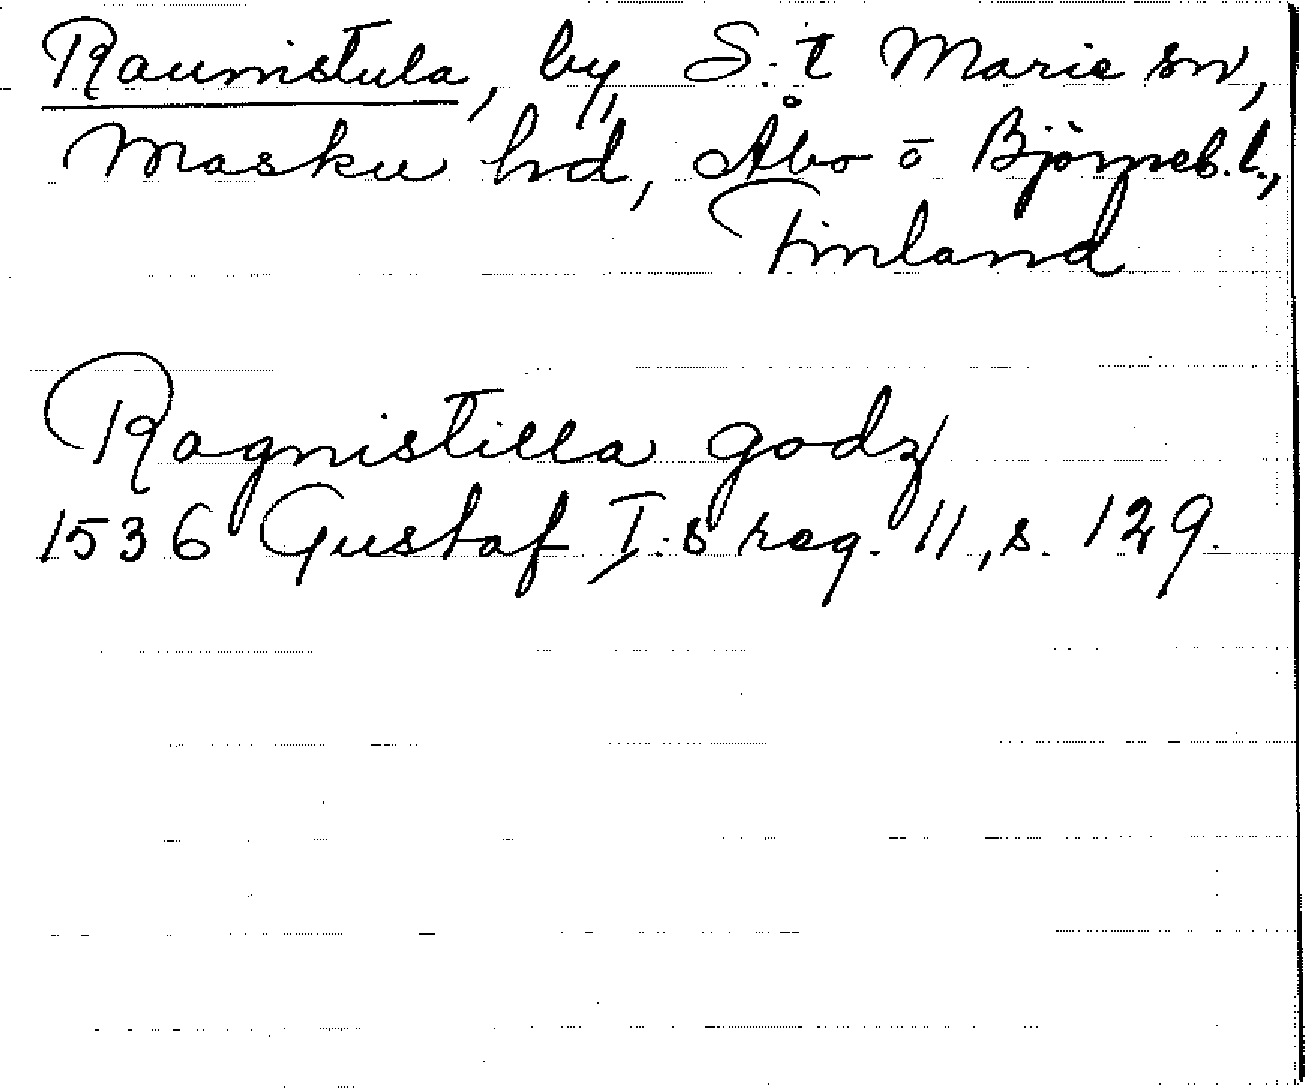 Raunistula, by, S:t Marie sn,
Masku hd, Åbo o Björneb. l.,
Finland
Ragnistilla godz
1536 Gustaf I:s reg. 11, s. 129.